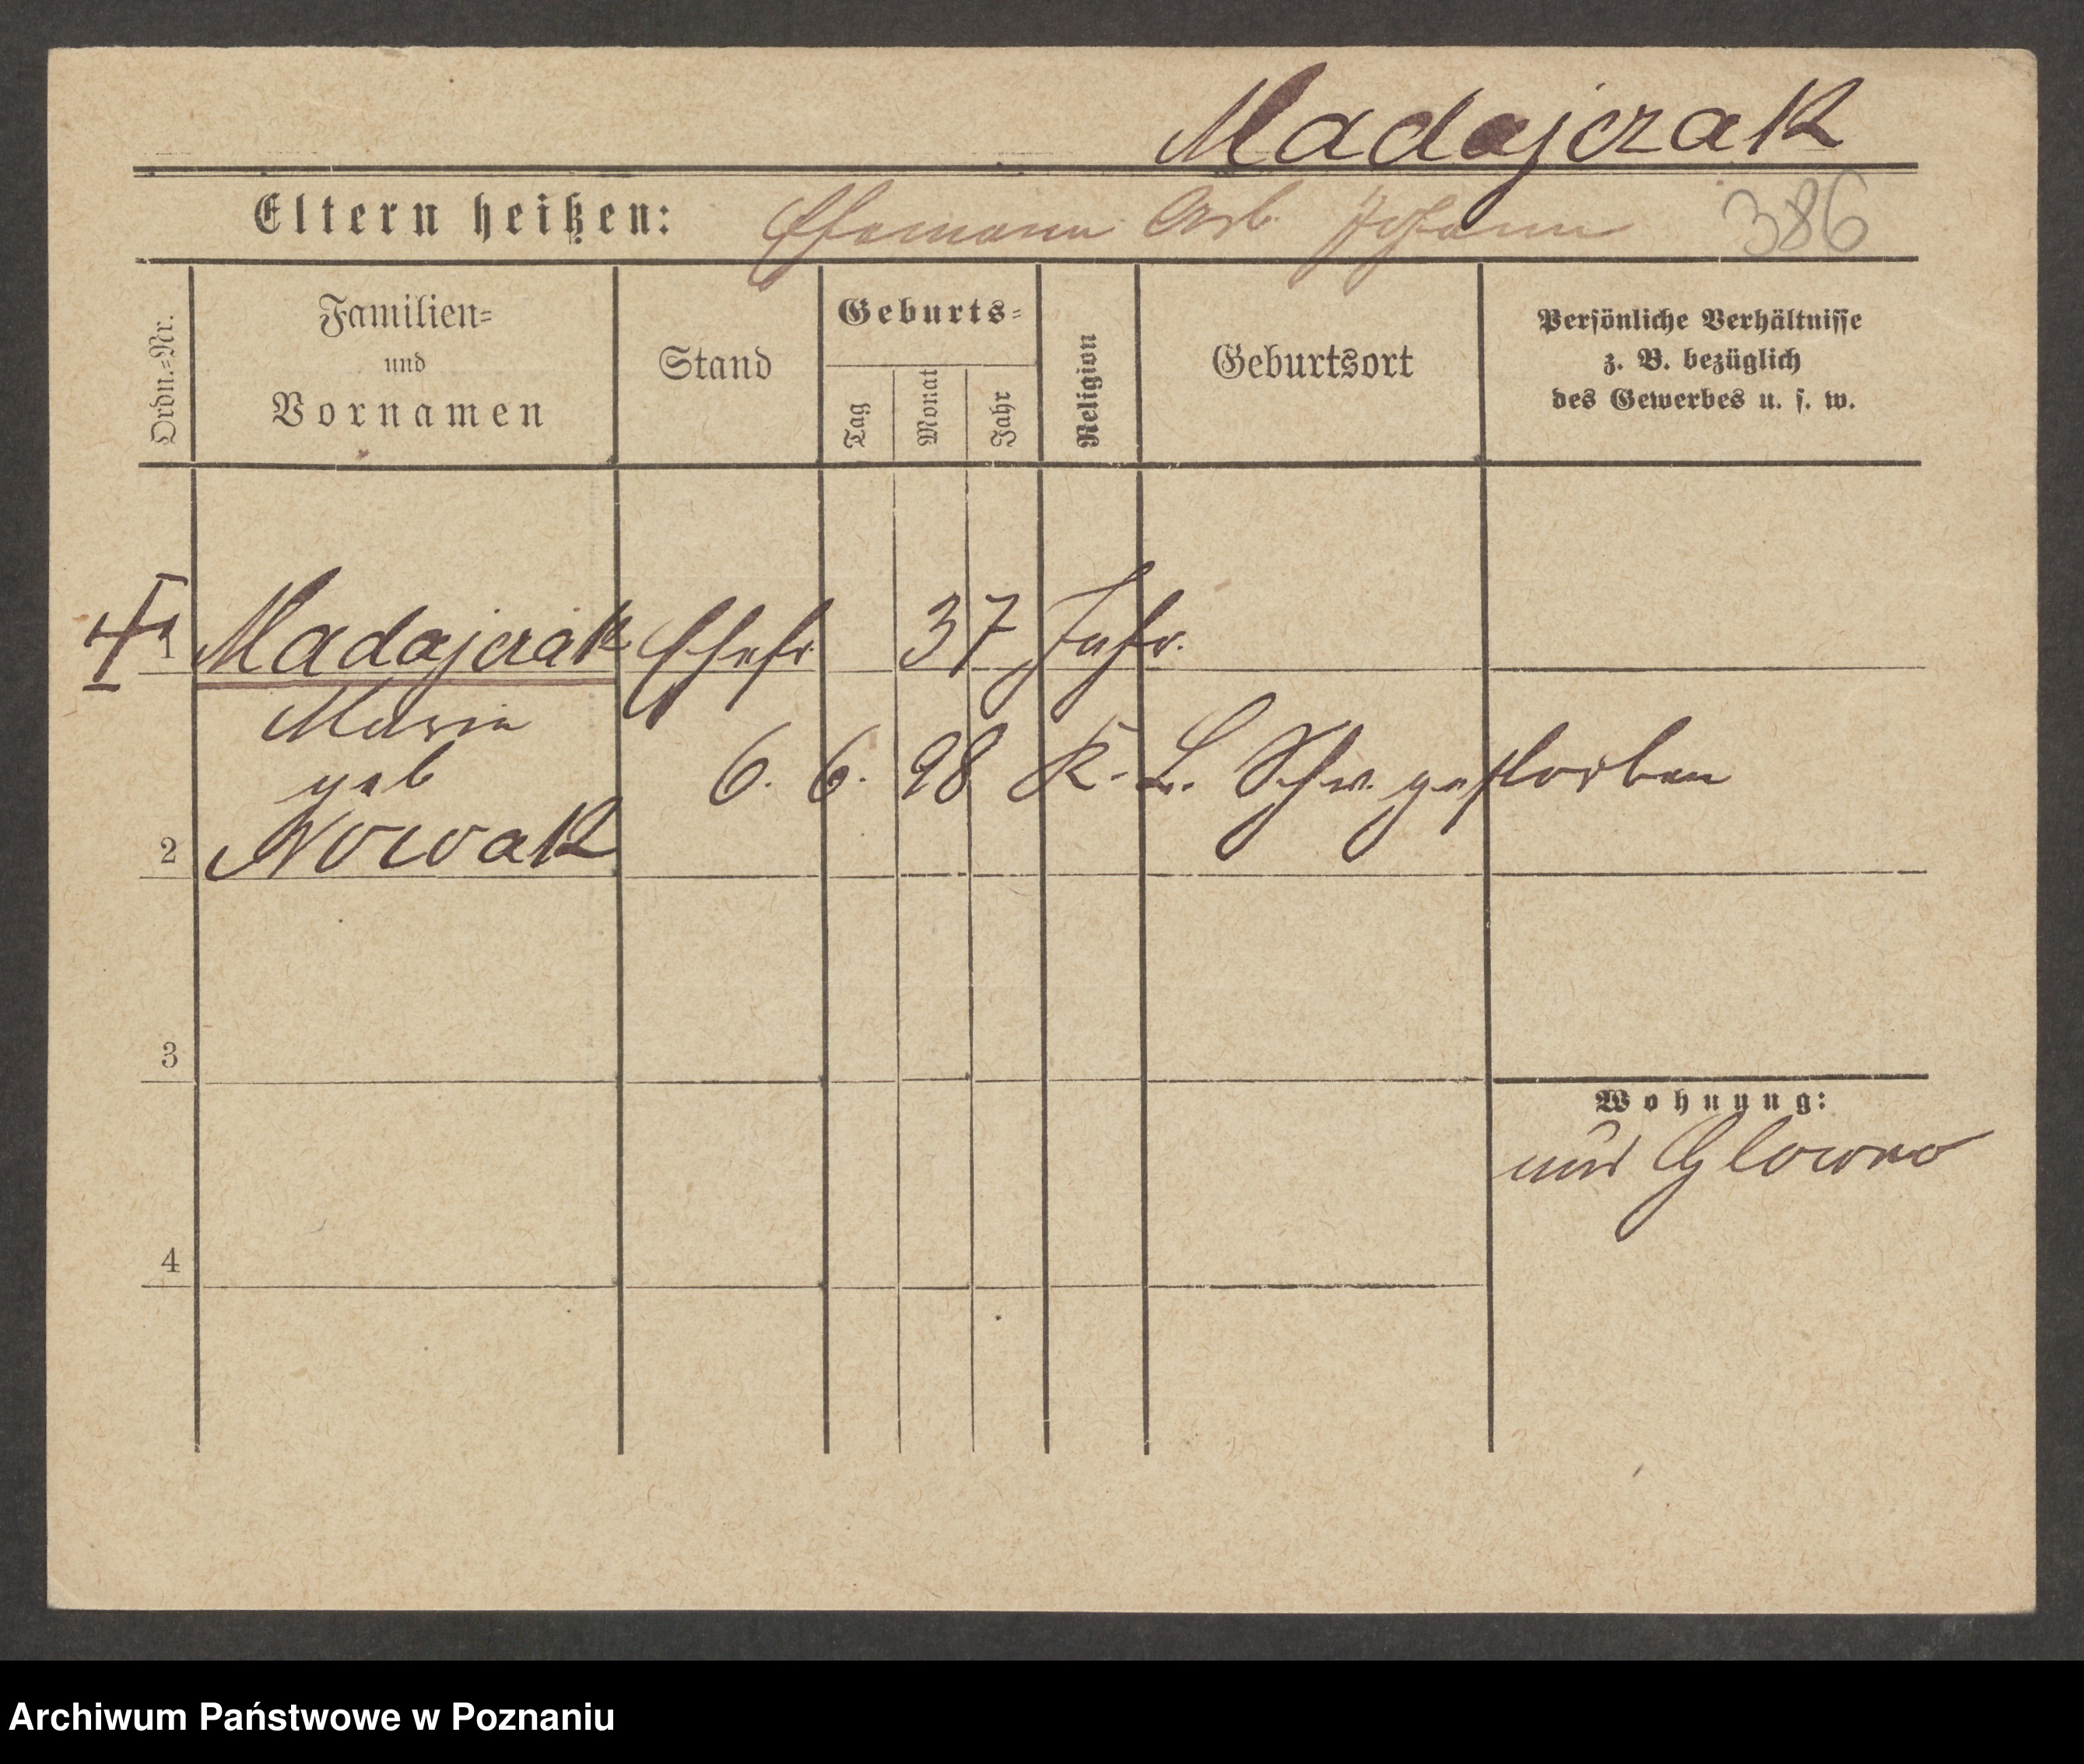 Madajczak
Eltern heißen: Ehemann Arb. Johann 386
Ordn.=Nr.
Familien=
und
Vornamen
Stand
Geburts=
Tag
Monat
Jahr
Religion
Geburtsort
Persönliche Verhältnisse
z. B. bezüglich
des Gewerbes u. s. w.
1 Madajczak Ehefr 37 Jahr.
Maria
geb
6. 6. 98 K. L. Schw. gestorben
2 Nowak
3
Wohnung:
aus Glowno
4
Archiwum Państwowe w Poznaniu